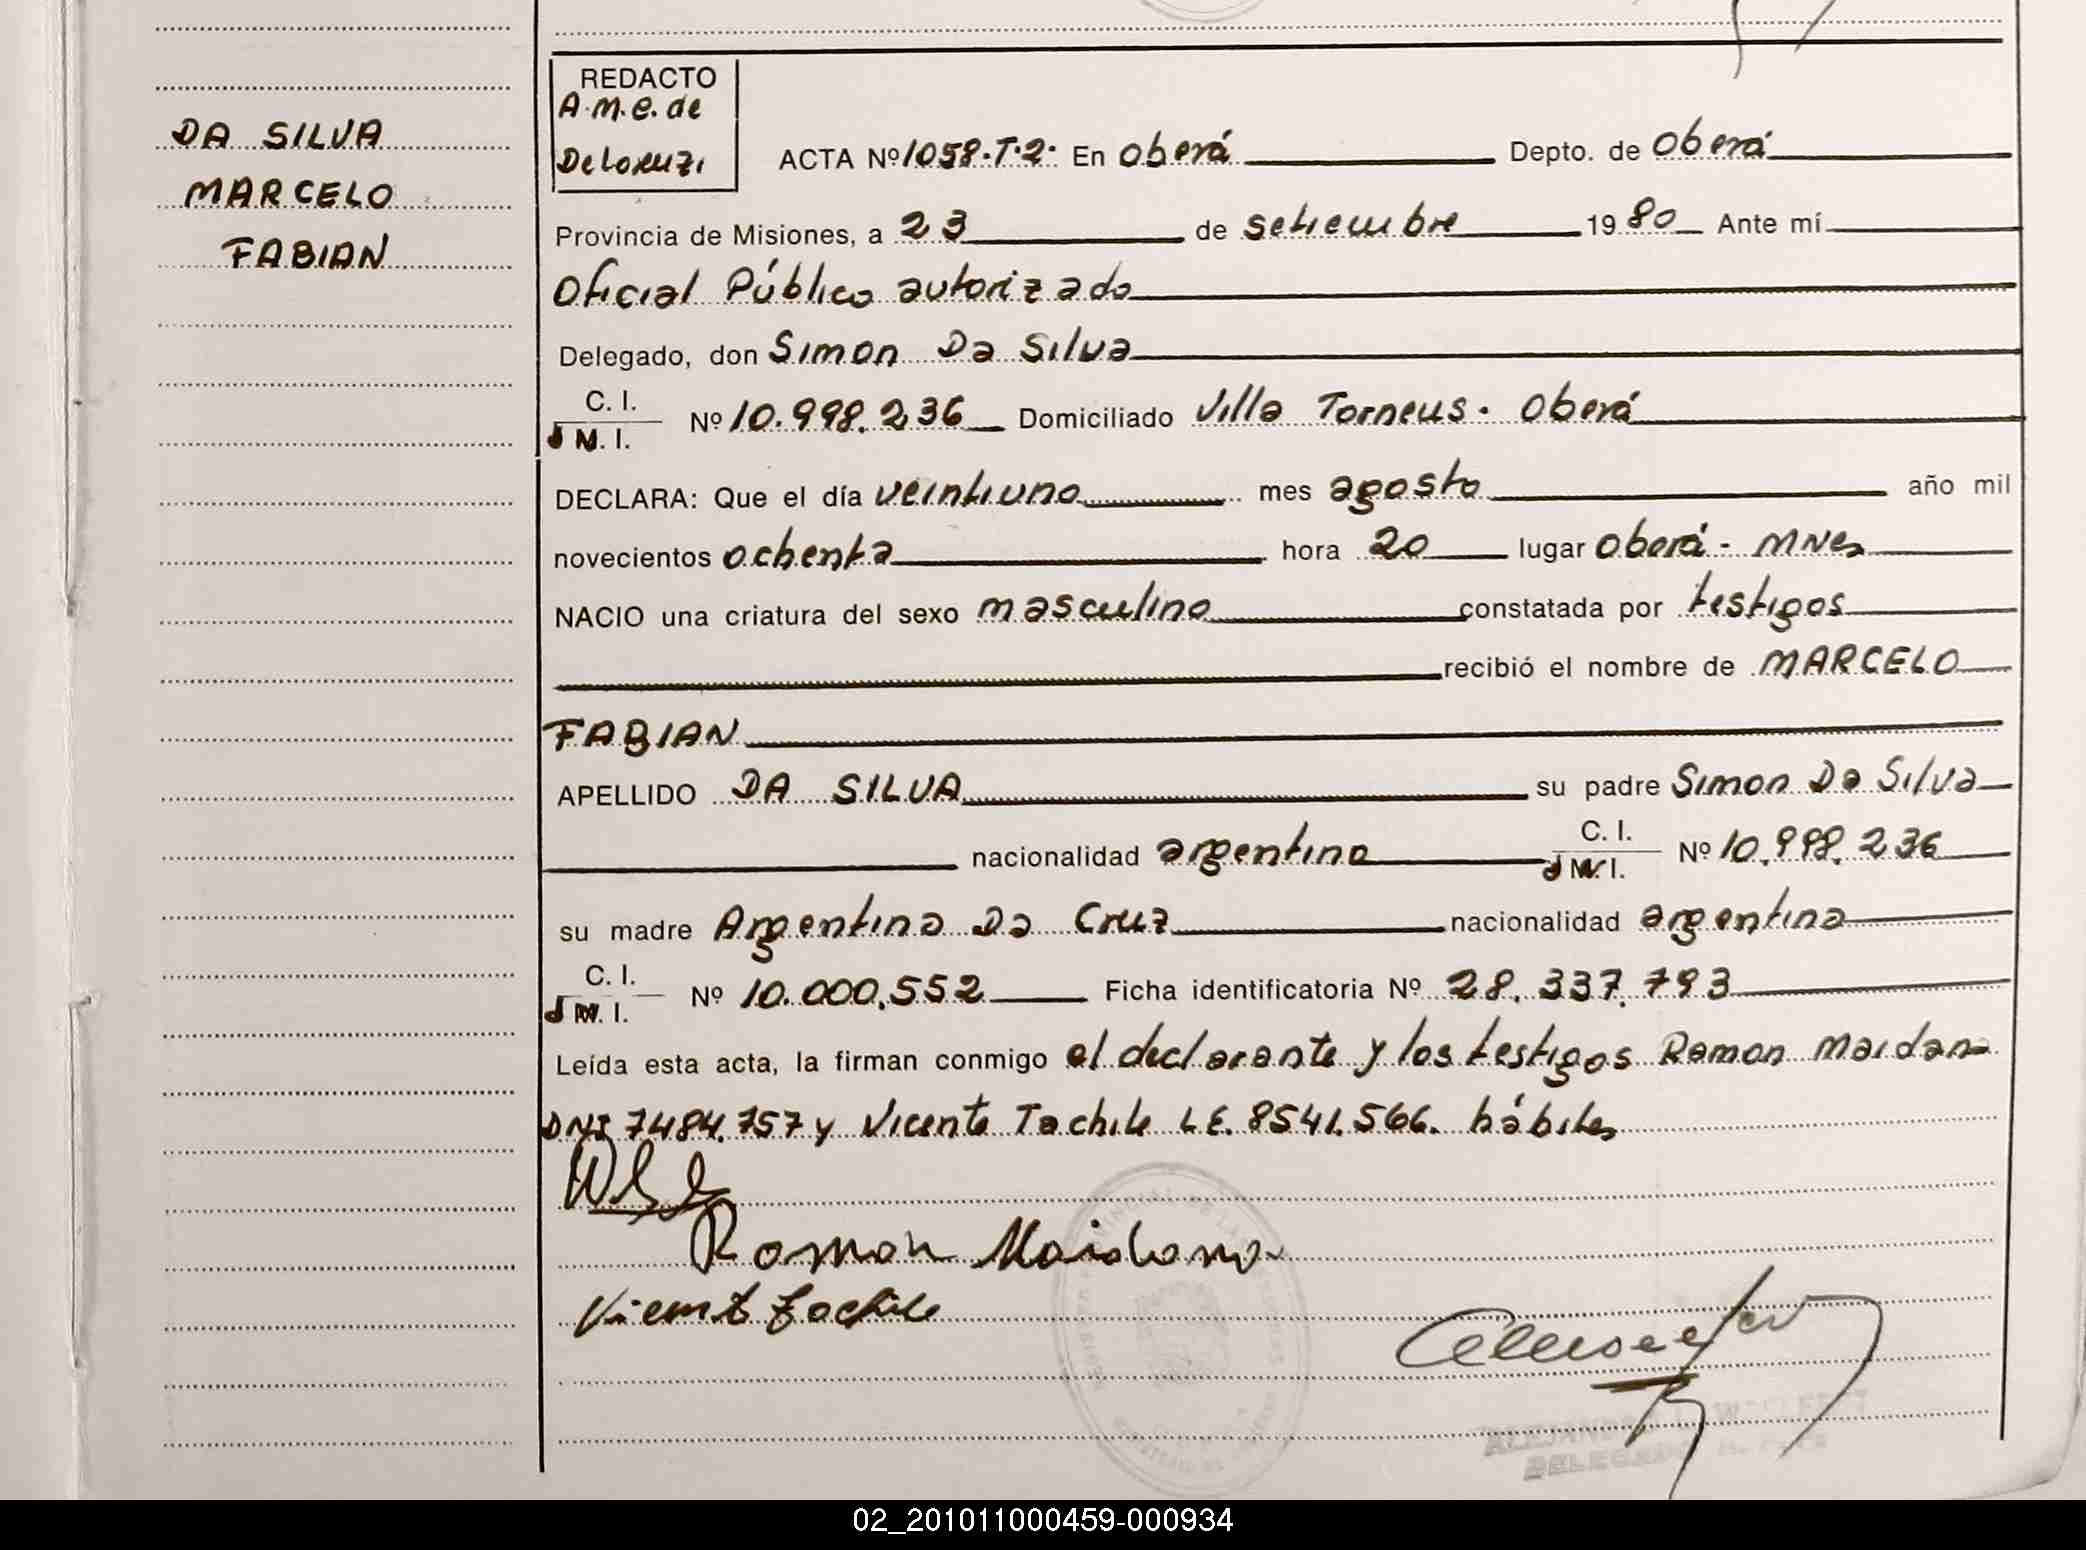 DA SILVA
MARCELO
FABIAN
REDACTO
A.M.E. de
DeLorenzi
ACTA Nº 1058.T.2. En Oberá Depto. de Oberá
Provincia de Misiones, a 23 de setiembre 1980 Ante mí
Oficial Público autorizado
Delegado, don Simon Da Silva
C. I.
M. I. Nº 10.998.236 Domiciliado Villa Torneus. Oberá
DECLARA: Que el día veintiuno mes agosto año mil
novecientos ochenta hora 20 lugar Oberá - Mnes
NACIO una criatura del sexo masculino constatada por testigos
recibió el nombre de MARCELO
FABIAN
APELLIDO DA SILVA su padre Simon Da Silva
nacionalidad argentina C. I.
M. I. Nº 10.998.236
su madre Argentina Da Cruz nacionalidad argentina
C. I.
M. I. Nº 10.000.552 Ficha identificatoria Nº 28.337.793
Leída esta acta, la firman conmigo el declarante y los testigos Ramon Maidana
DNI 7484.757 y Vicente Tachile L.E. 8541.566. hábiles
Ramon Maidana
Vicente Tachile
02_201011000459-000934